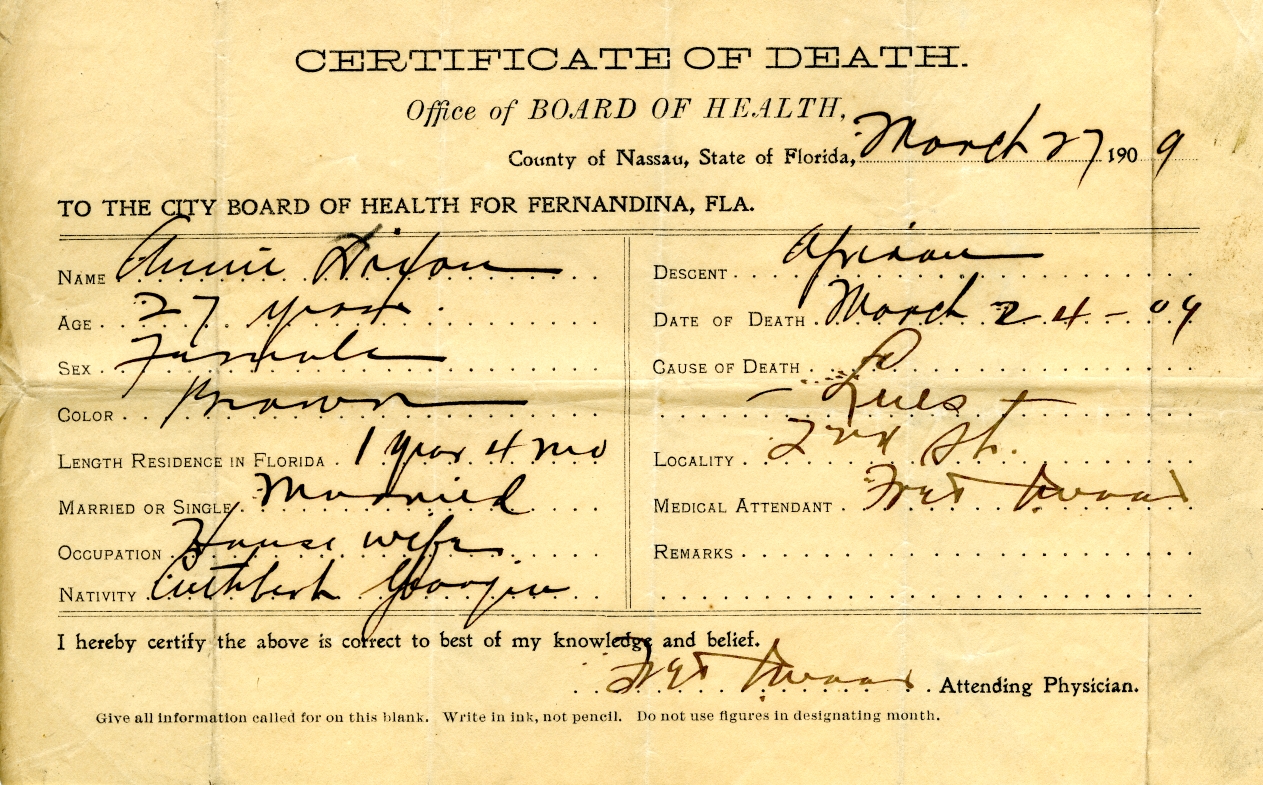 CERTIFICATE OF DEATH.
Office of BOARD OF HEALTH,
County of Nassau, State of Florida, March 27 190 9
TO THE CITY BOARD OF HEALTH FOR FERNANDINA, FLA.
NAME Annie Dixon
AGE 27 years
SEX Female
COLOR Brown
LENGTH RESIDENCE IN FLORIDA 1 year 4 mo
MARRIED OR SINGLE Married
OCCUPATION House wife
NATIVITY Cuthbert Georgia
DESCENT African
DATE OF DEATH March 24-09
CAUSE OF DEATH
- Lues -
LOCALITY 2nd St.
MEDICAL ATTENDANT
REMARKS
I hereby certify the above is correct to best of my knowledge and belief.
Attending Physician.
Give all information called for on this blank. Write in ink, not pencil. Do not use figures in designating month.